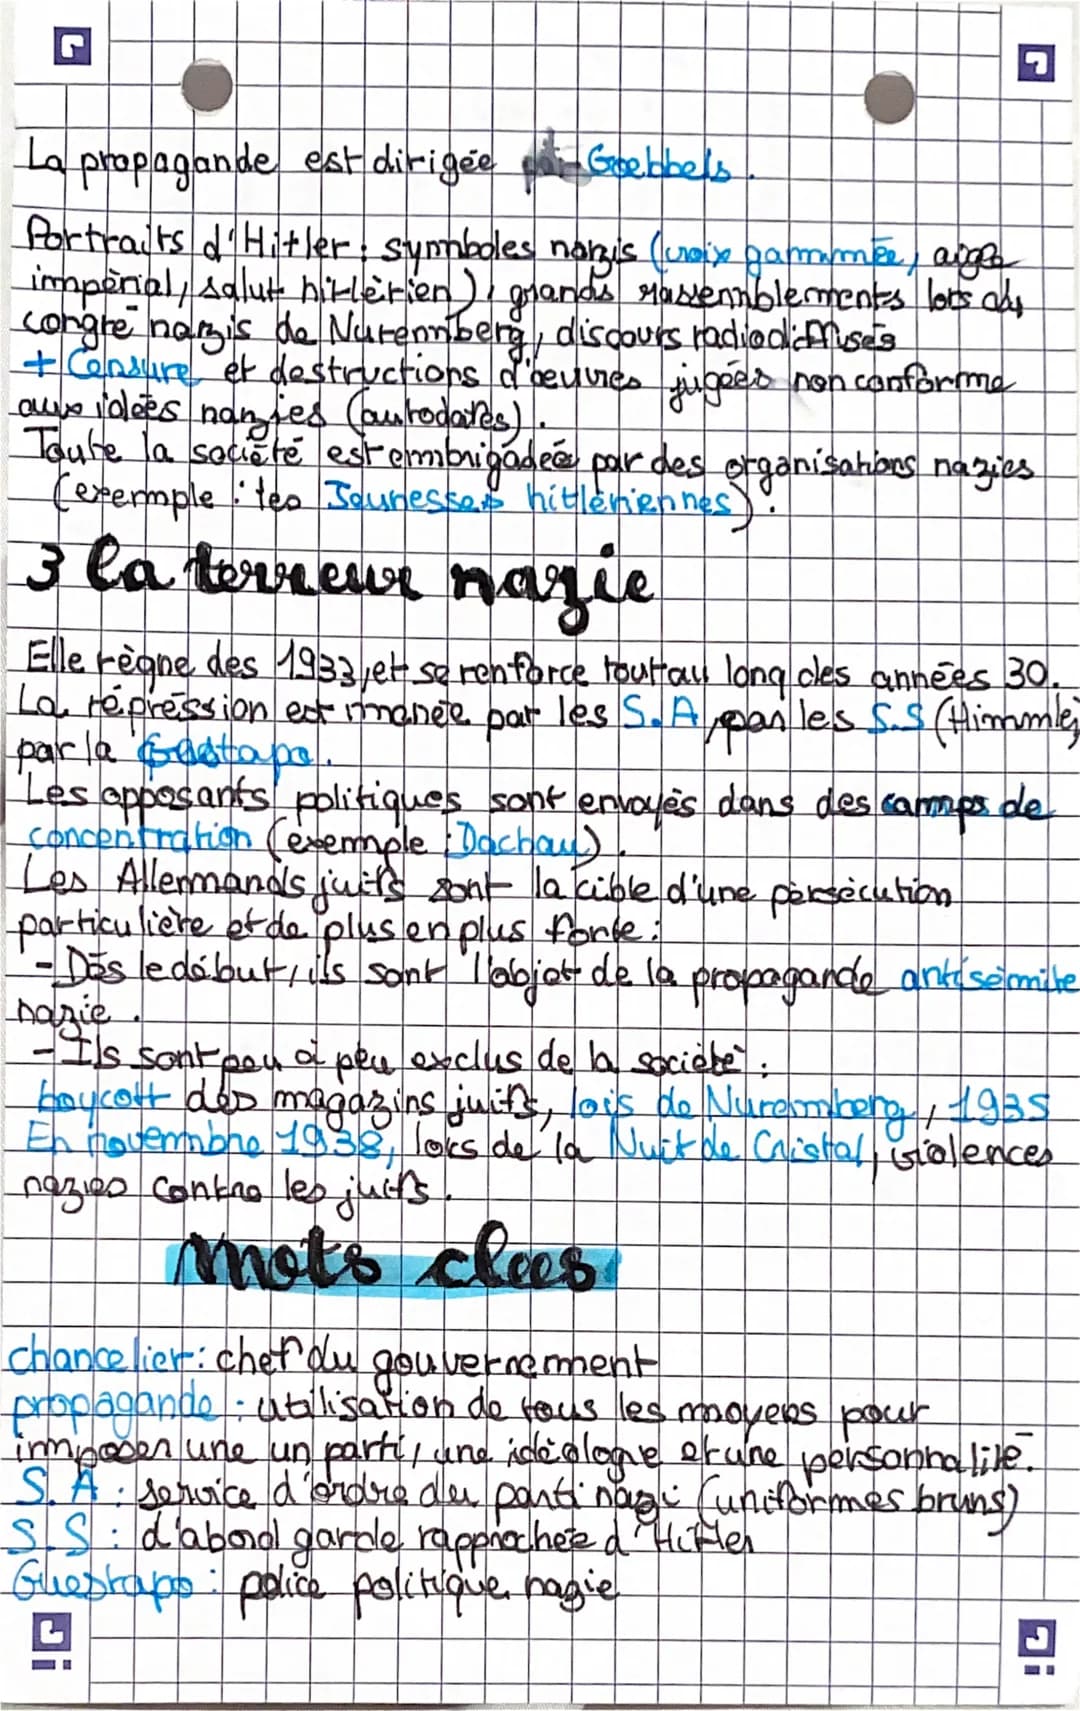 La propagande est dirigée par Goebbels.
Portraits d'Hitler; symboles nazis (croix gammée, aigle
impérial, salut hitlérien), grands rassemblements lors du
congré nazis de Nuremberg, discours radiodiffusés
+ Censure et destructions d'oeuvres jugées non conforme
aux idées nazies (autodafés).
Toute la société est embrigadée par des organisations nazies
(exemple : les Jeunesses hitlériennes).
3 la terreur nazie
Elle règne des 1933, et se renforce tout au long des années 30.
La répression est menée par les S.A, par les S.S (Himmle
par la Gestapo.
Les opposants politiques sont envoyés dans des camps de
concentration (exemple : Dachau).
Les Allemands juifs sont la cible d'une persécution
particulière et de plus en plus forte :
- Dès le début, ils sont l'objet de la propagande antisémite
nazie.
- Ils sont peu à peu exclus de la société :
boycott des magazins juifs, lois de Nuremberg, 1935
En novembre 1938, lors de la Nuit de Cristal, violences
nazies contre les juifs.
Mots clees
chancelier : chef du gouvernement
propagande : utilisation de tous les moyens pour
imposer une un parti, une idéologie et une personnalité.
S.A : service d'ordre du parti nazi (uniformes bruns)
S.S : d'abord garde rapprochée d'Hitler
Guestapo : police politique nazie